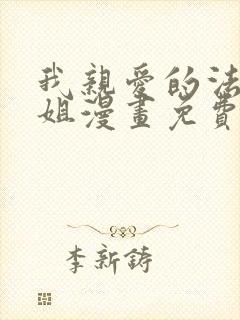 我親愛的法
姐漫畫免費
李新鑄